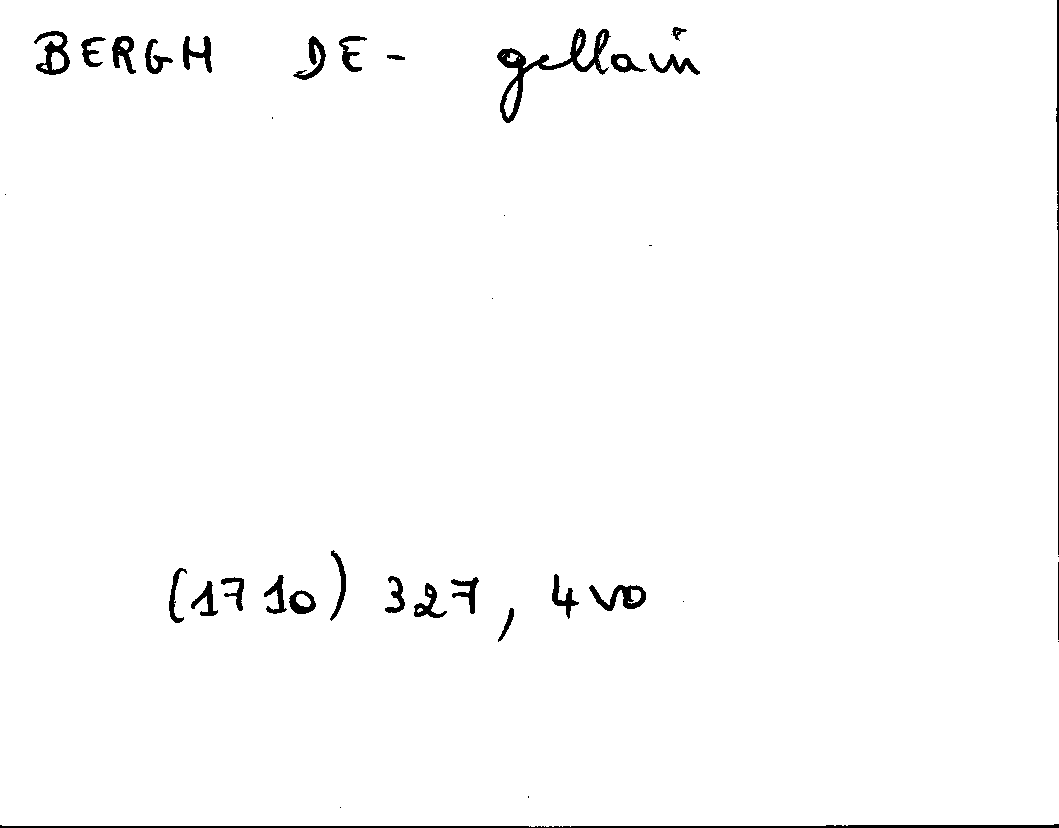 BERGH DE- gellain
(1710) 327, 4vo